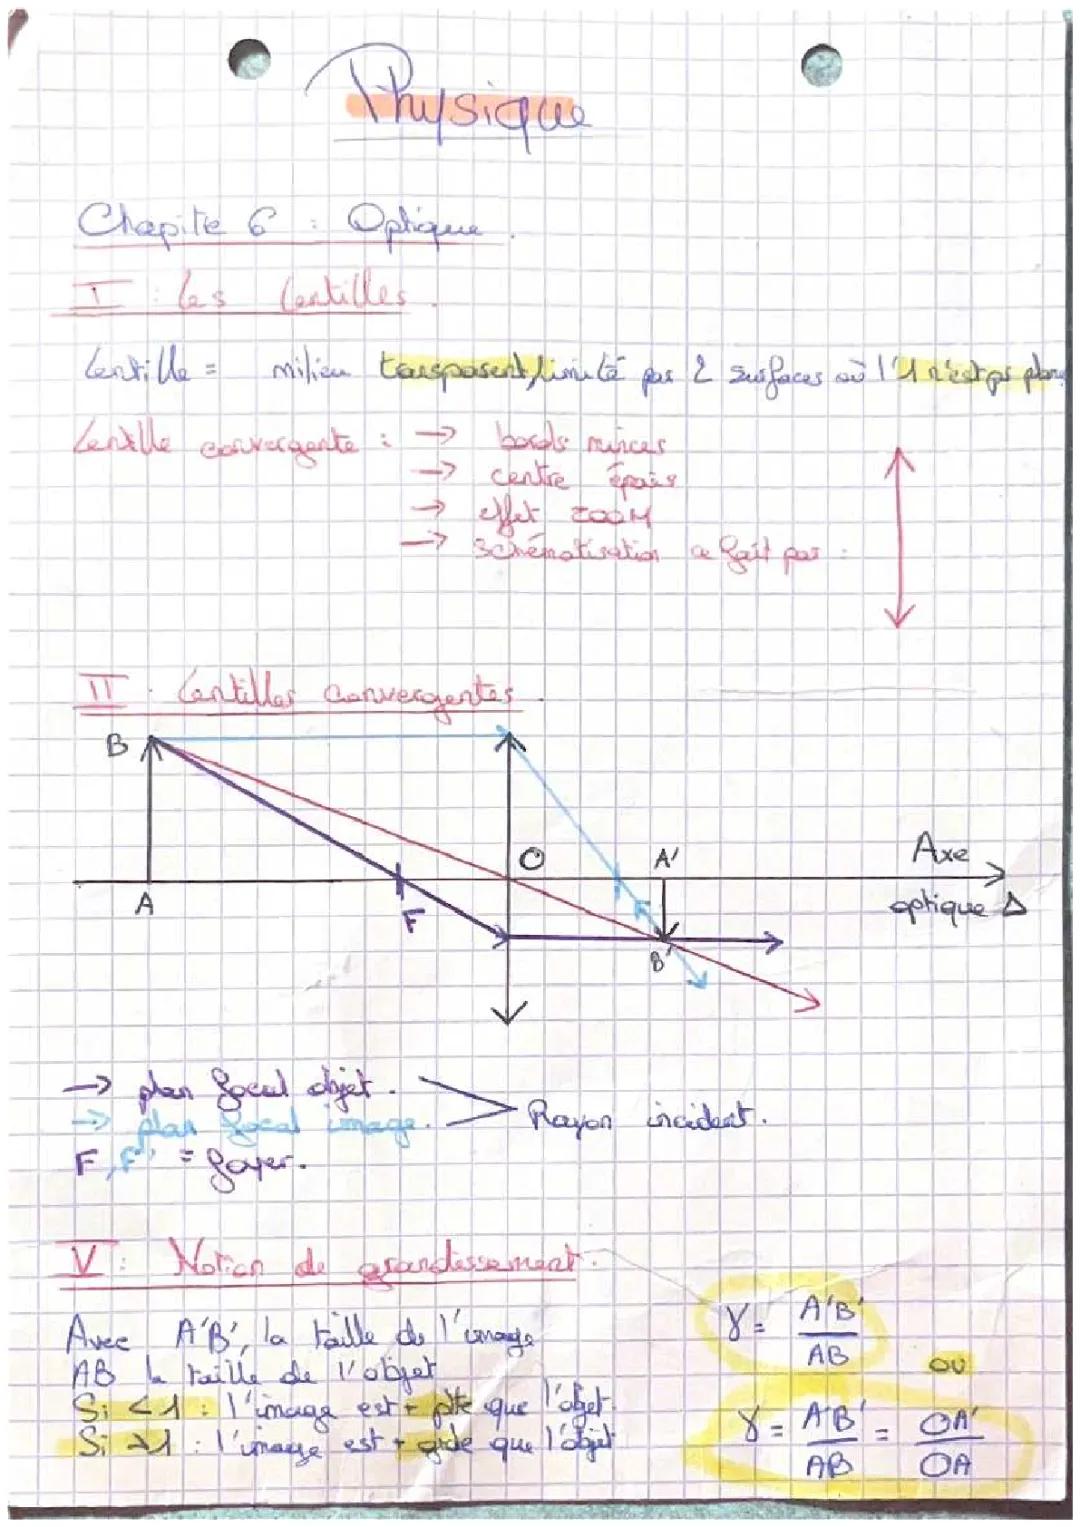 Physique
Chapitre 6 : Optique.
I : Les lentilles.
Lentille = milieu transparent, limité par 2 surfaces où l'1 n'est ps plane
Lentille convergente : → bords minces
→ centre épais
→ effet ZOOM
→ schématisation se fait par :
II : Lentilles convergentes.
B
O
A'
Axe
optique Δ
A
F
B'
→ plan focal objet.
→ plan focal image.
Rayon incident.
F, F' = foyer.
V : Notion de grandissement.
Avec A'B', la taille de l'image
AB la taille de l'objet
Si <1 : l'image est + pte que l'objet
Si >1 : l'image est + gde que l'objet
γ = A'B' / AB
ou
γ = A'B' / AB = OA' / OA